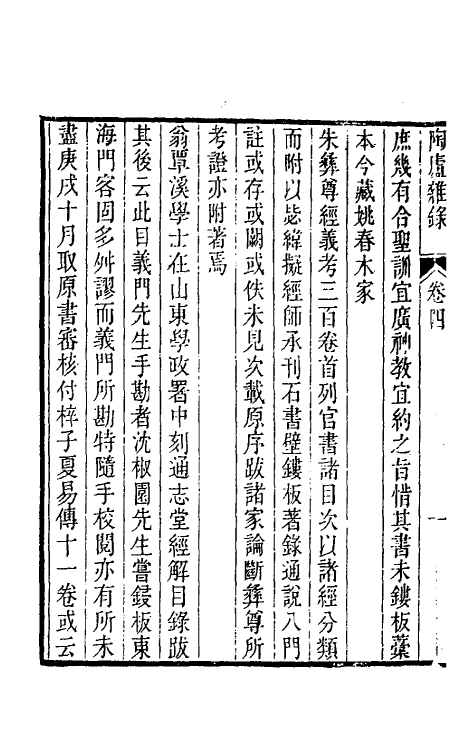 陶廬雜錄
卷四
庶幾有合聖訓宜廣神教宜約之旨惜其書未鏤板藁
本今藏姚春木家
朱彝尊經義考三百卷首列官書諸目次以諸經分類
而附以毖緯擬經師承刊石書壁鏤板著錄通說八門
註或存或闕或佚未見次載原序跋諸家論斷彝尊所
考證亦附著焉
翁覃溪學士在山東學政署中刻通志堂經解目錄跋
其後云此目義門先生手勘者沈椒園先生嘗鋟板東
海門客固多舛謬而義門所勘特隨手校閱亦有所未
盡庚戌十月取原書審核付梓子夏易傳十一卷或云